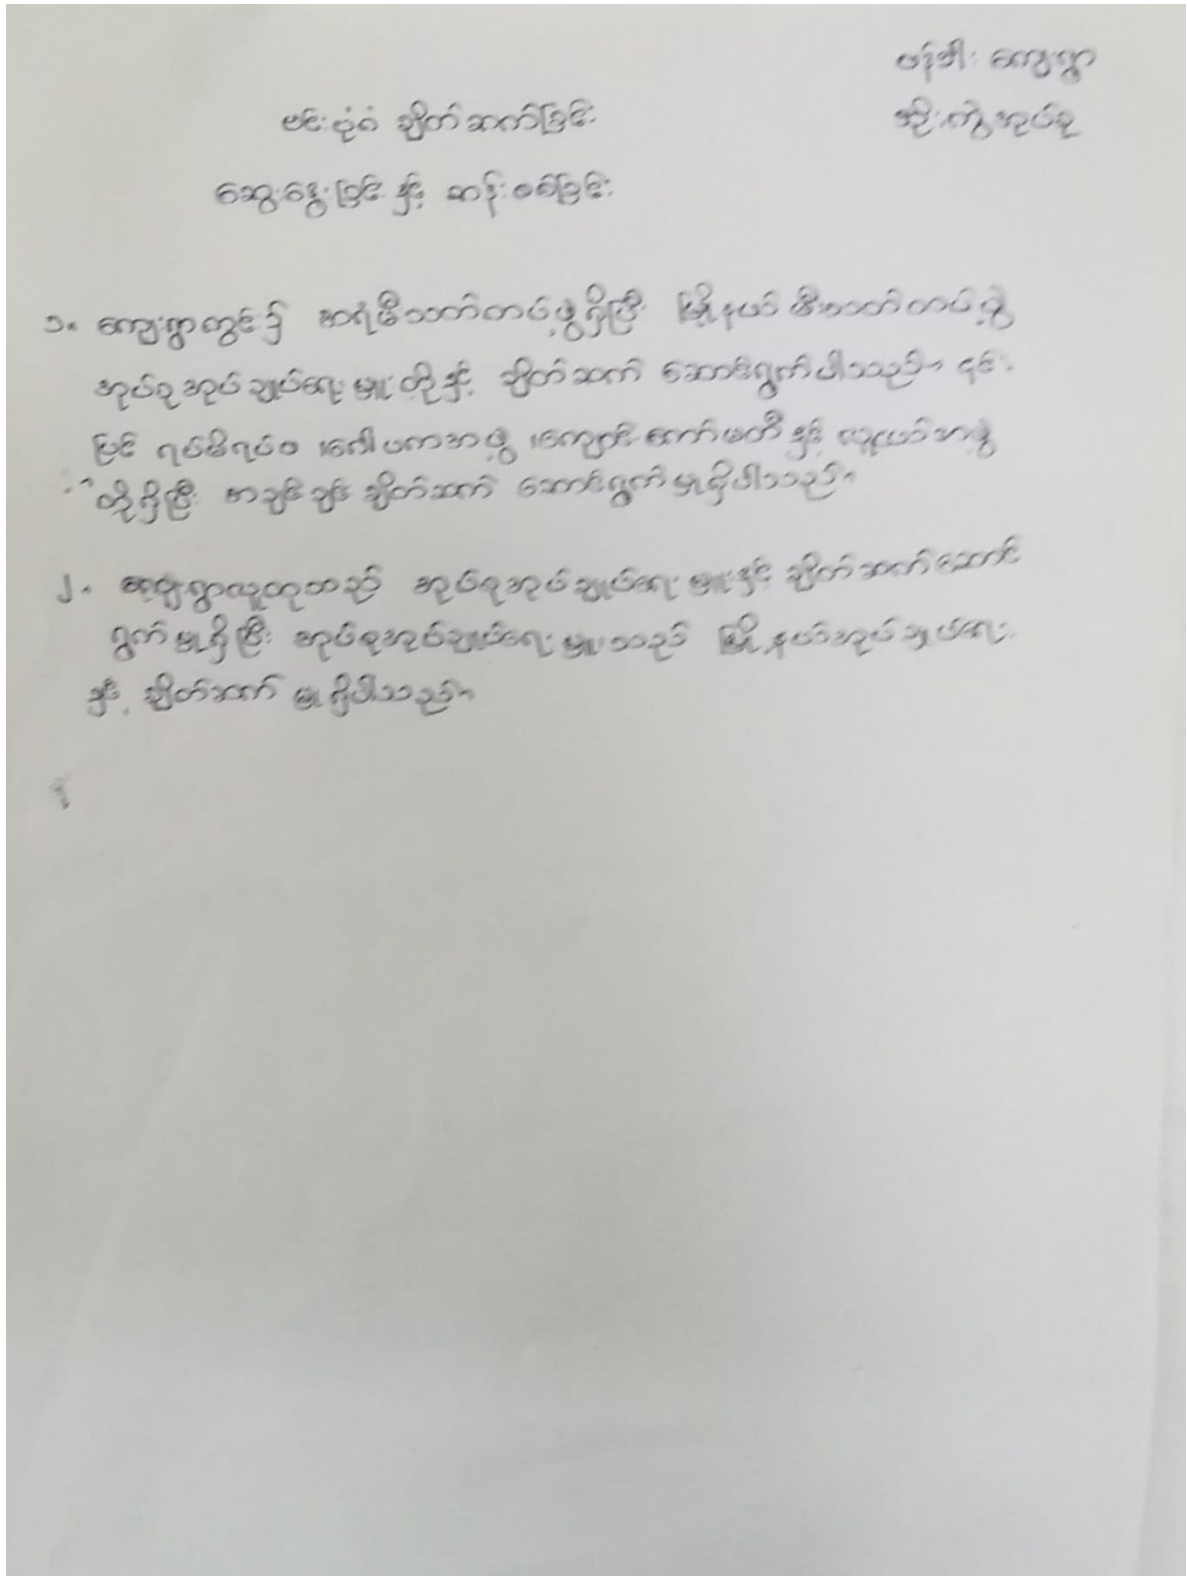 ဗန်ဒါး ကျေးရွာ
ဗင်းပုံဂံ ချိတ်ဆက်ခြင်း
အိုးကွဲအုပ်စု
ဆွေးနွေးခြင်းနှင့် ဆန်းစစ်ခြင်း
၁။ ကျေးရွာတွင်း၌ အရံမီးသတ်တပ်ဖွဲ့ရှိပြီး မြို့နယ်မီးသတ်တပ်ဖွဲ့
အုပ်စုအုပ်ချုပ်ရေးမှူးတို့နှင့် ချိတ်ဆက် ဆောင်ရွက်ပါသည်။ ၎င်း
ပြင် ရပ်မိရပ်ဖ ၊ဂေါပကအဖွဲ့ ၊ကျောင်းကော်မတီနှင့် လူငယ်အဖွဲ့
တို့ရှိပြီး အချင်းချင်း ချိတ်ဆက် ဆောင်ရွက်မှုရှိပါသည်။
၂။ ကျေးရွာလူထုသည် အုပ်စုအုပ်ချုပ်ရေးမှူးနှင့် ချိတ်ဆက်ဆောင်
ရွက်မှုရှိပြီး အုပ်စုအုပ်ချုပ်ရေးမှူးသည် မြို့နယ်အုပ်ချုပ်ရေး
နှင့် ချိတ်ဆက်မှုရှိပါသည်။